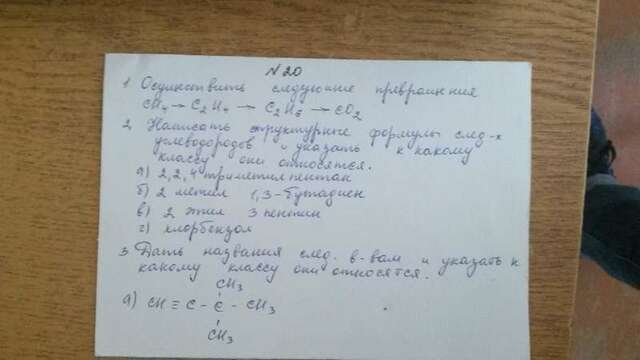 N20
1. Осуществить следующие превращения
CH4 → C2H4 → C2H6 → CO2
2. Написать структурные формулы след-х
углеводородов и указать к какому
классу они относятся.
а) 2,2,4 триметилпентан
б) 2 метил 1,3-бутадиен
в) 2 этил 3 пентин
г) хлорбензол
3. Дать названия след. в-вам и указать к
какому классу они относятся.
CH3
а) CH ≡ C - C - CH3
CH3